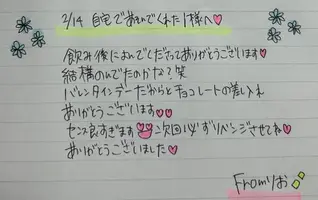 2/14 自宅であそんでくれた I様へ♡
飲み後によんでくださってありがとうございます♡
結構のんでたのかな?笑
バレンタインデーだからとチョコレートの差し入れ
ありがとうございます♡♡
センス良すぎます 次回必ずリベンジさせてね♡
ありがとうございました♡
Fromりお